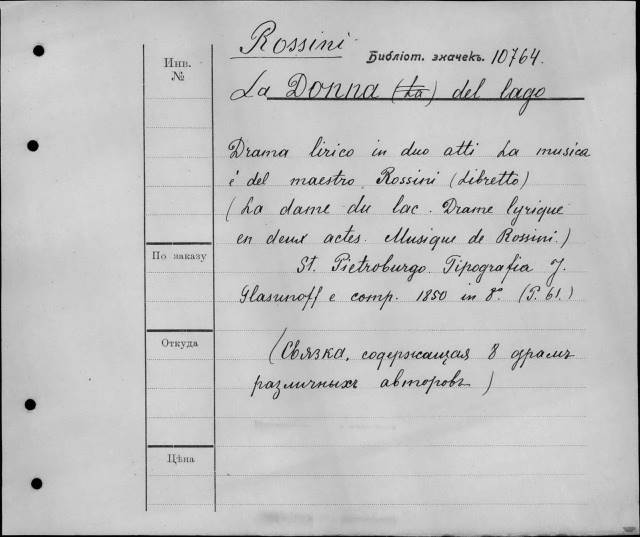 Rossini
Библіот. значекъ. 10764.
Инв.
№
La Donna (La) del lago
Drama lirico in duo atti La musica
é del maestro Rossini (Libretto)
(La dame du lac. Drame lyrique
en deux actes. Musique de Rossini.)
По заказу
St. Pietroburgo. Tipografia J.
Glasunoff e comp. 1850 in 8º. (P. 61.)
Откуда
(Связка, содержащая 8 драмъ
различныхъ авторовъ)
Цѣна